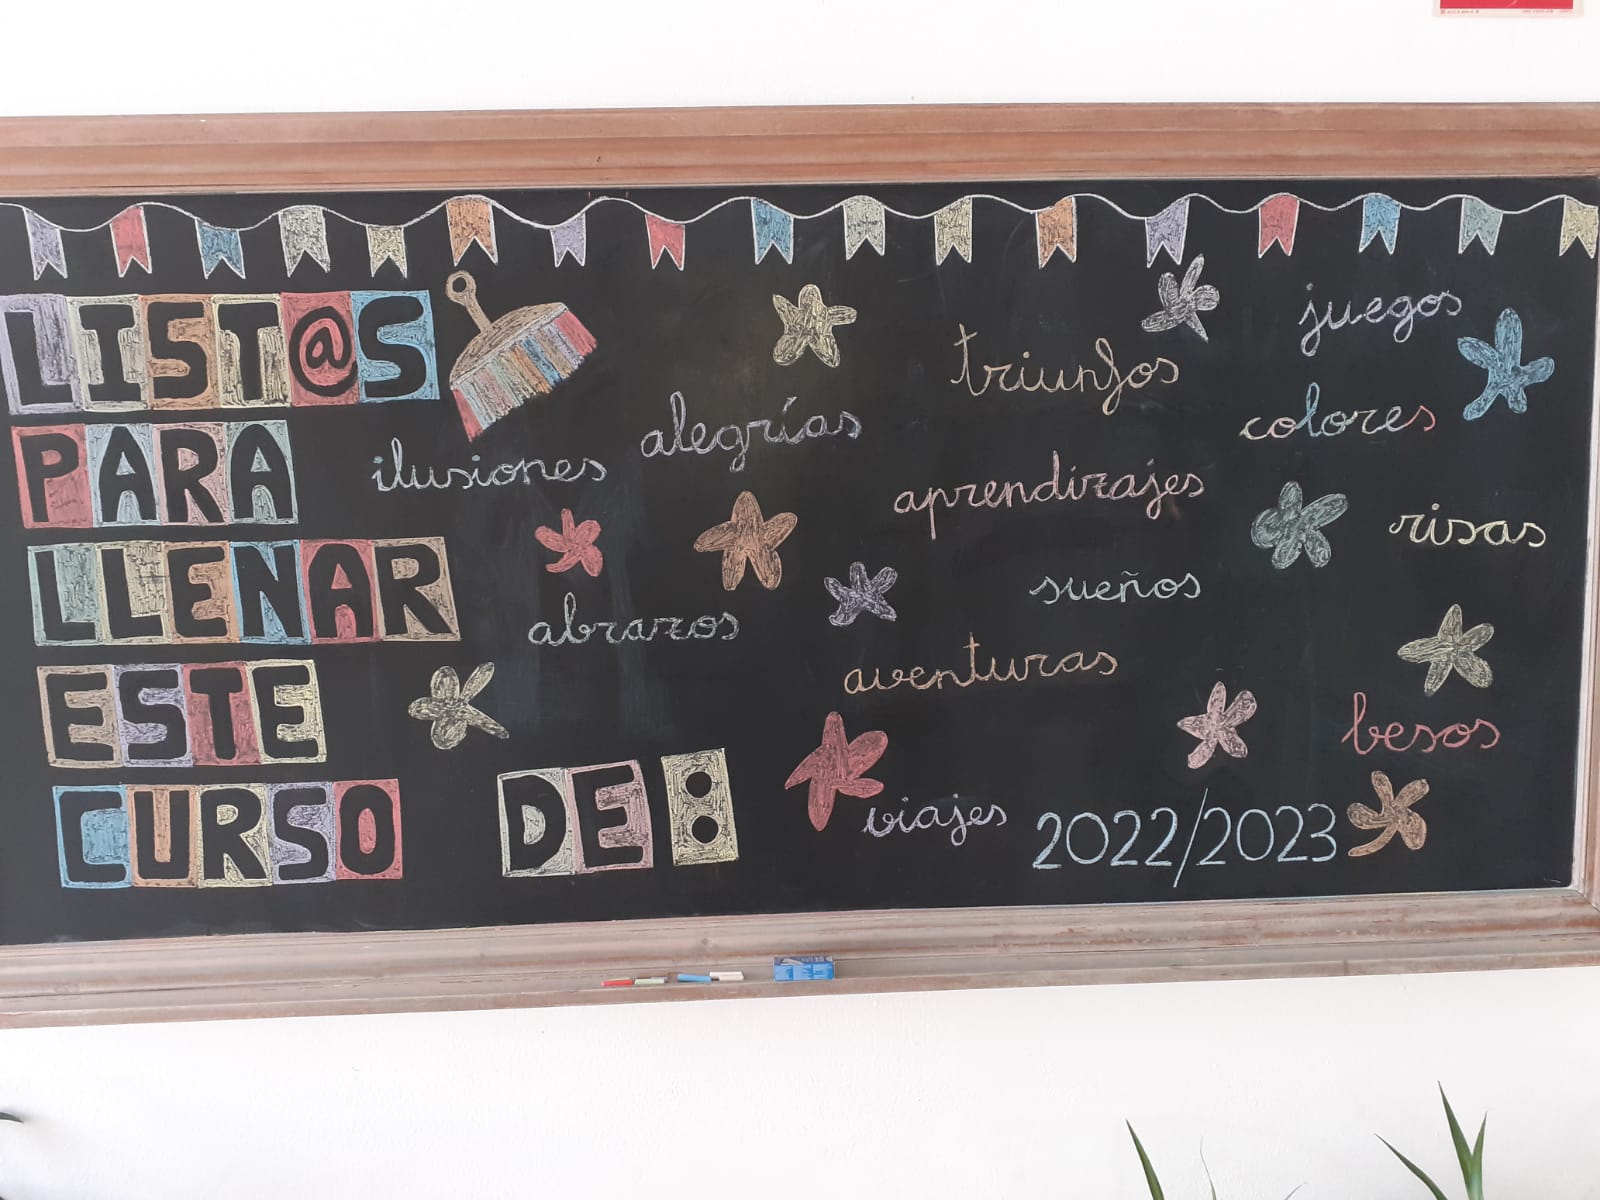 LIST@S
PARA
LLENAR
ESTE
CURSO DE:
ilusiones
alegrías
triunfos
juegos
colores
aprendizajes
risas
abrazos
sueños
aventuras
besos
viajes
2022/2023